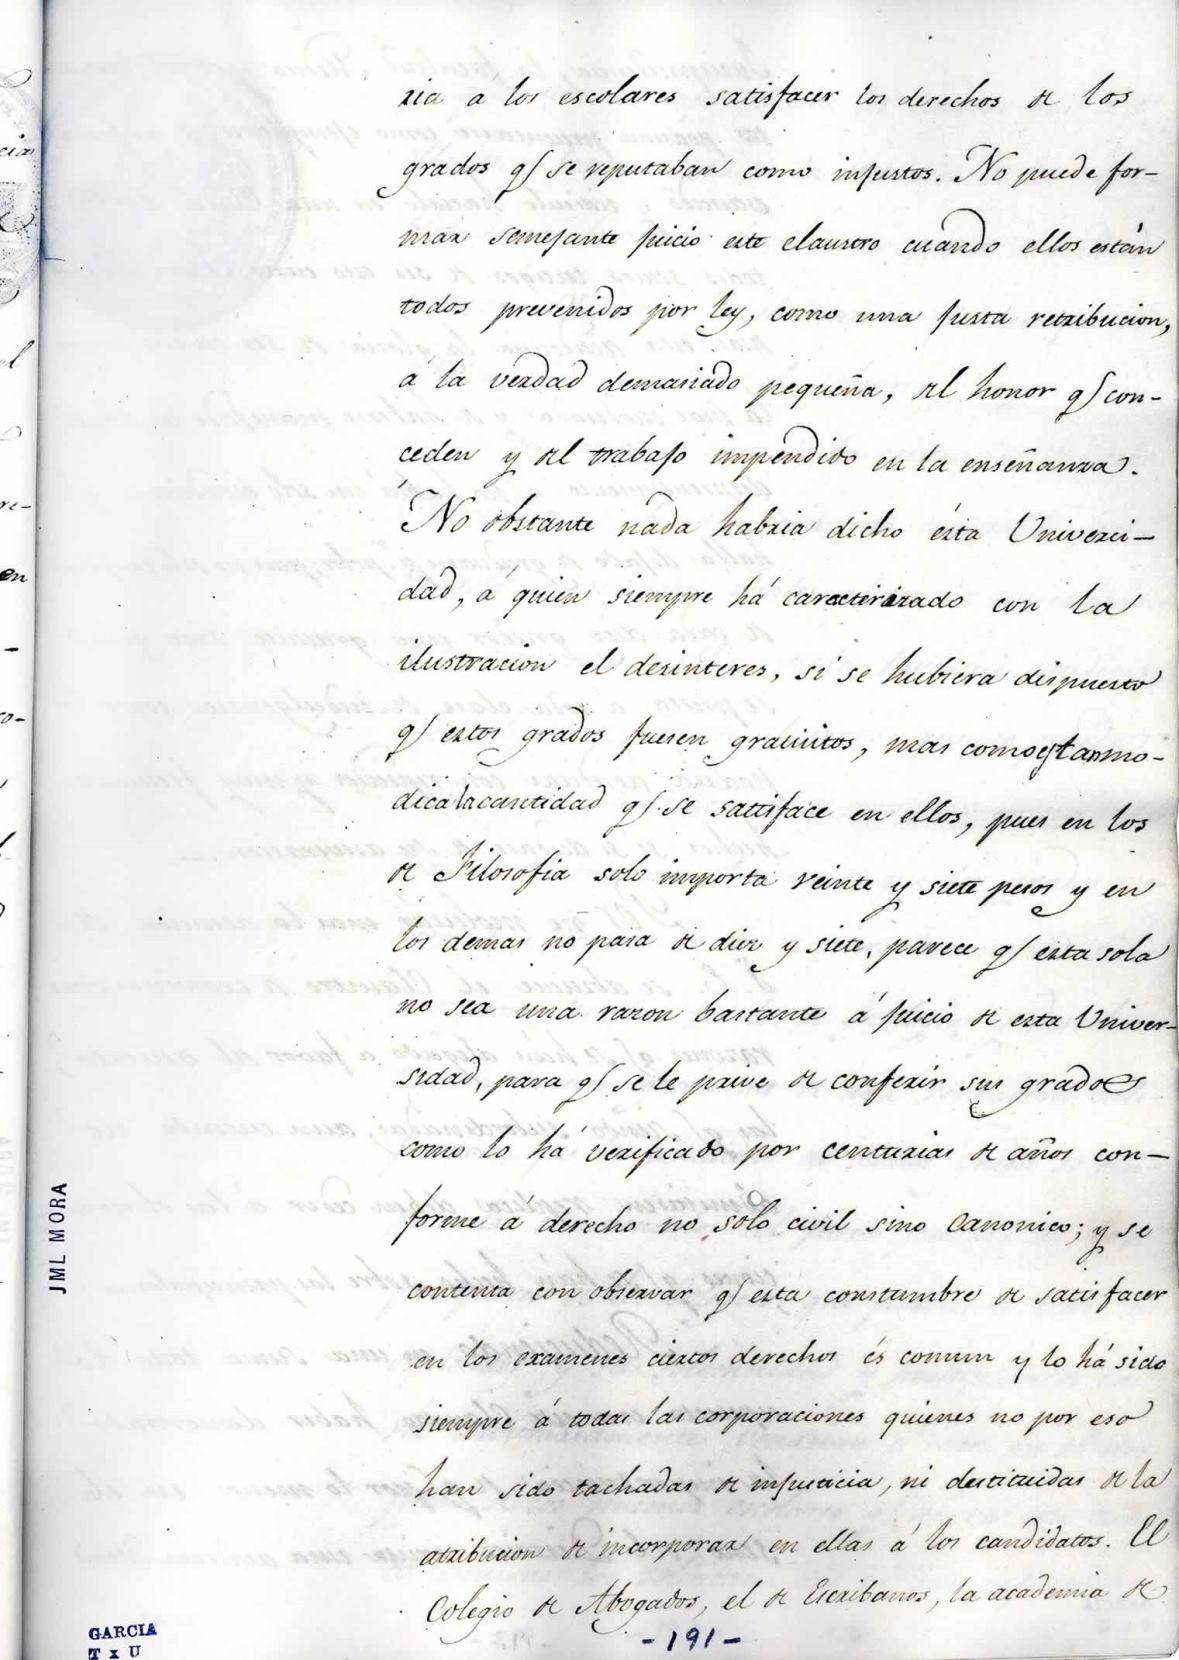 ria á los escolares satisfacer los derechos de los
grados q.e se reputaban como injustos. No puede for-
mar semejante juicio este claustro cuando ellos están
todos prevenidos por ley, como una justa retribucion,
á la verdad demasiado pequeña, del honor q.e con-
ceden y del trabajo impendido en la enseñanza.
No obstante nada habria dicho ésta Universi-
dad, á quien siempre há caracterizado con la
ilustracion el desinteres, si se hubiera dispuesto
q.e estos grados fuesen gratuitos, mas como es tan mo-
dica la cantidad q.e se satisface en ellos, pues en los
de Filosofia solo importa veinte y siete pesos y en
los demas no pasa de diez y siete, parece q.e esta sola
no sea una razon bastante á juicio de esta Univer-
sidad, para q.e se le prive de conferir sus grados
como lo há verificado por centurias de años con-
forme á derecho no solo civil sino Canonico; y se
contenta con observar q.e esta constumbre de satisfacer
en los examenes ciertos derechos és comun y lo há sido
siempre á todas las corporaciones quienes no por eso
han sido tachadas de injusticia, ni destituidas de la
atribucion de incorporar en ellas á los candidatos. El
Colegio de Abogados, el de Escribanos, la academia de
-191-
JML MORA
GARCIA
T x U